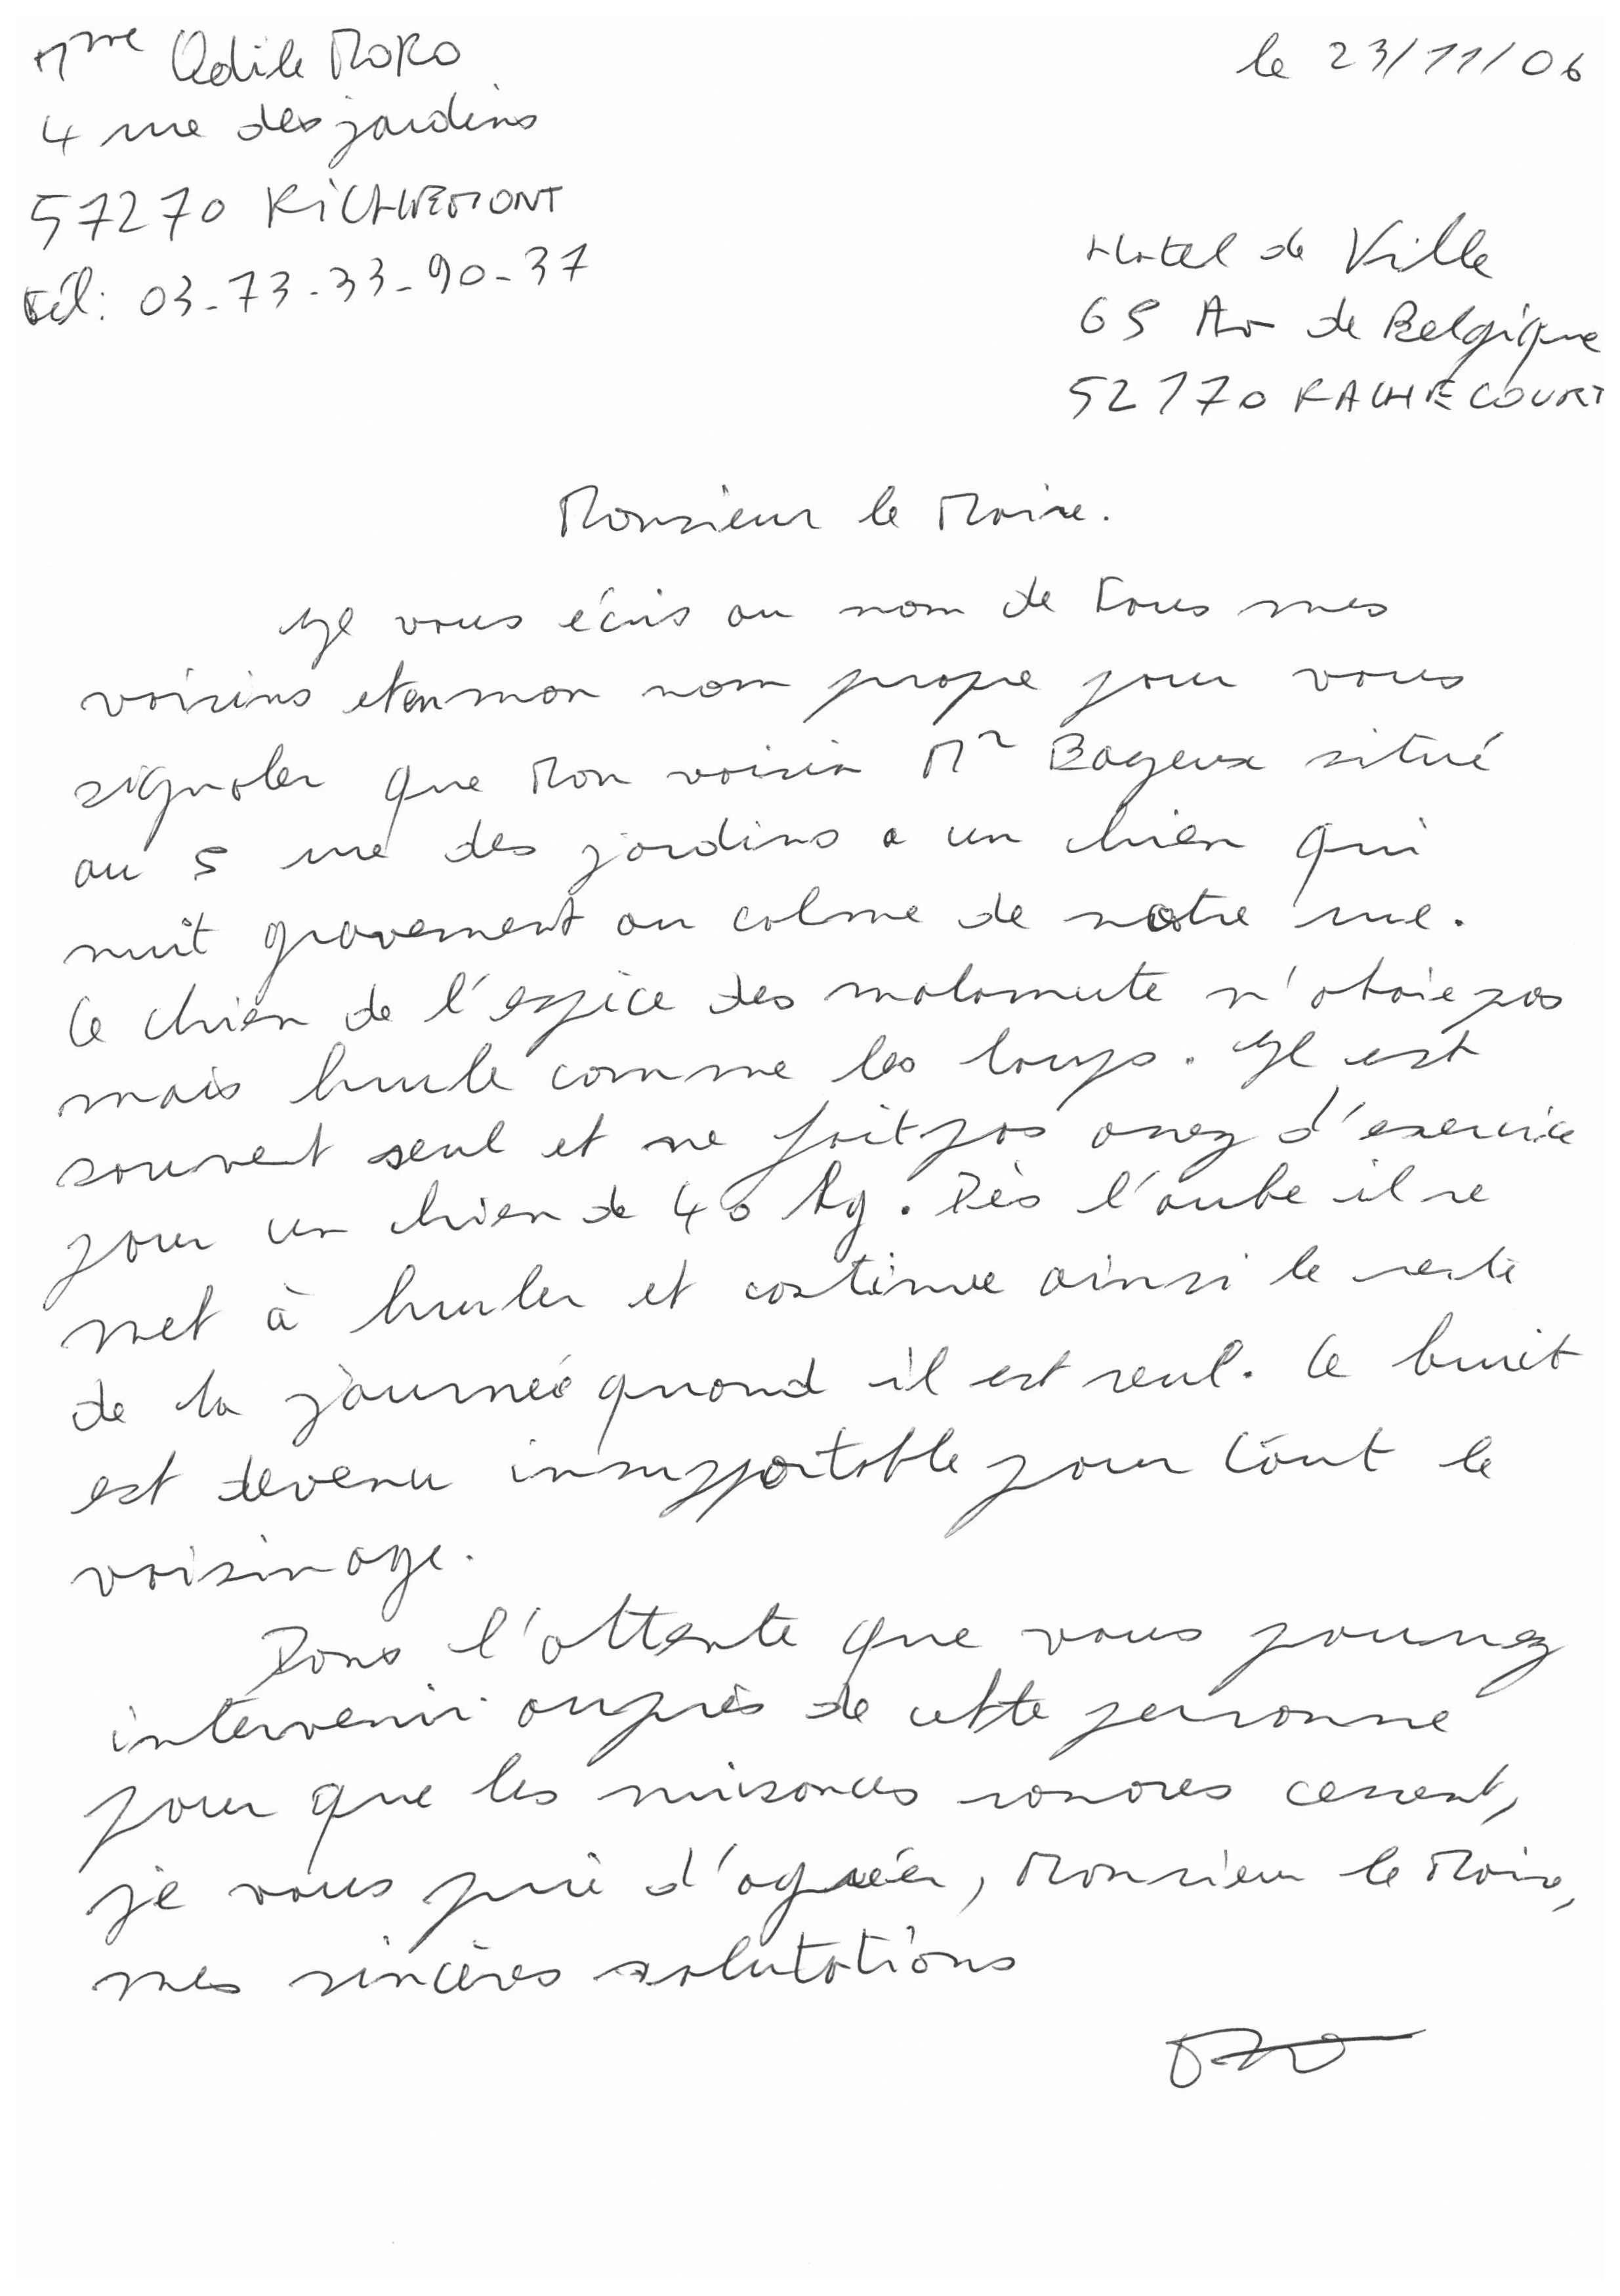 Mme Odile MORO
le 23/11/06
4 rue des jardins
57270 RiCHEMONT
tél: 03-73-33-90-37
Hotel de Ville
65 Av de Belgique
52170 RACHECOURT
Monsieur le Maire.
Je vous écris au nom de tous mes
voisins et en mon nom propre pour vous
signaler que Mon voisin Mr Bayeux situé
au 5 rue des jardins a un chien qui
nuit gravement au calme de notre rue.
Ce chien de l'espice des malamute n'aboie pas
mais hurle comme les loups. Il est
souvent seul et ne fait pas assez d'exercice
pour un chien de 40 kg. Dès l'aube il se
met à hurler et continue ainsi le reste
de la journée quand il est seul. Ce bruit
est devenu insupportable pour tout le
voisinage.
Dans l'attente que vous pourrez
intervenir auprès de cette personne
pour que les nuisances sonores cessent,
je vous prie d'agréer, Monsieur le Maire,
mes sincères salutations